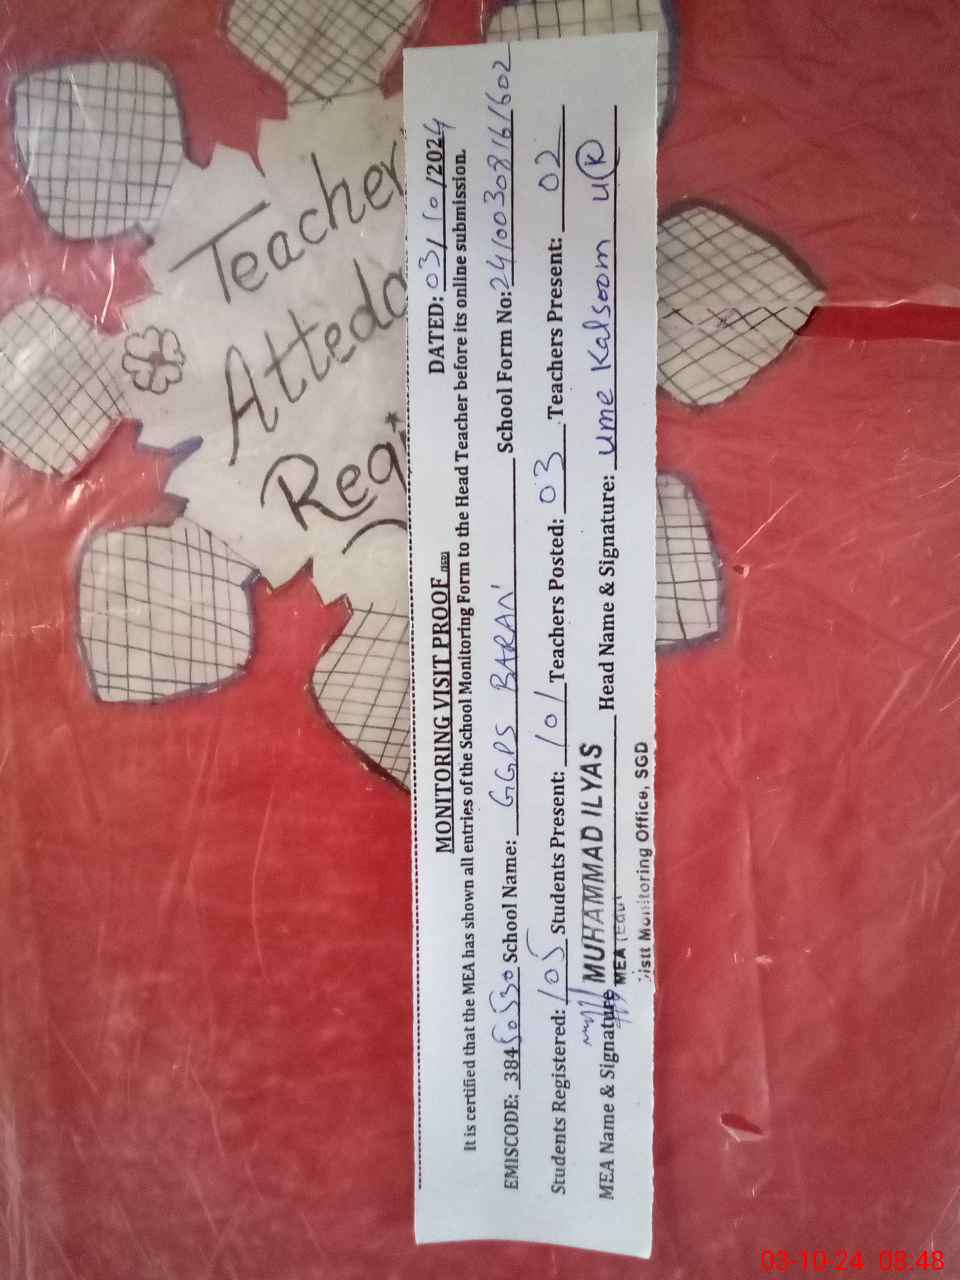 Teacher
Atteda
Regi
MONITORING VISIT PROOF DATED: 03/10/2024
It is certified that the MEA has shown all entries of the School Monitoring Form to the Head Teacher before its online submission.
EMISCODE: 38450530 School Name: GGPS BARAN' School Form No: 2410030816/602
Students Registered: 105 Students Present: 101 Teachers Posted: 03 Teachers Present: 02
MEA Name & Signature MUHAMMAD ILYAS Head Name & Signature: ume Kalsoom UK
MEA
istt Monitoring Office, SGD
03-10-24 08:48